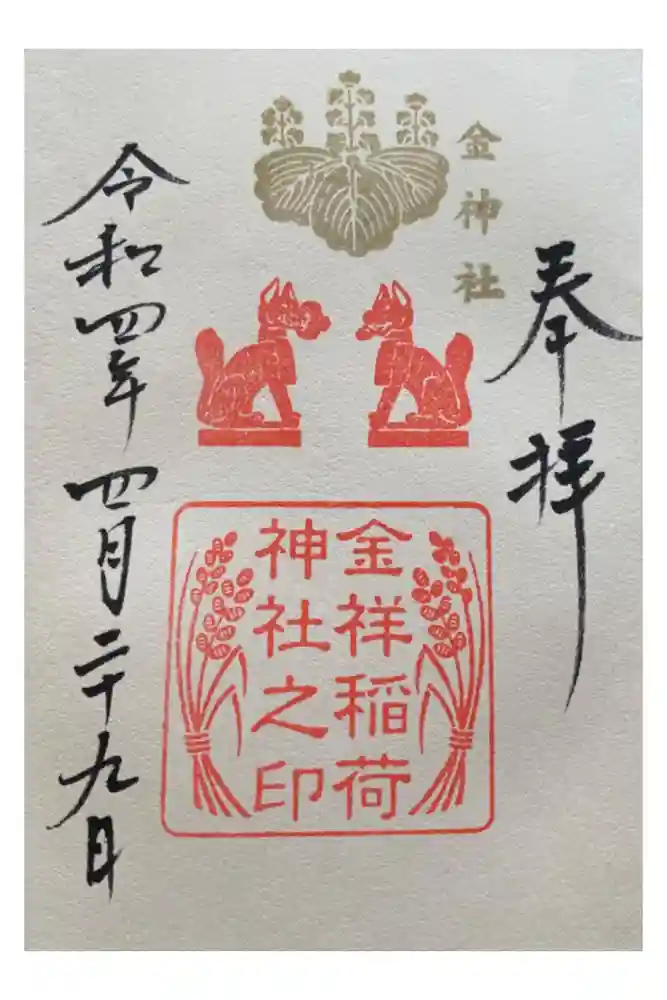 奉拝
金神社
金祥稲荷
神社之印
令和四年四月二十九日